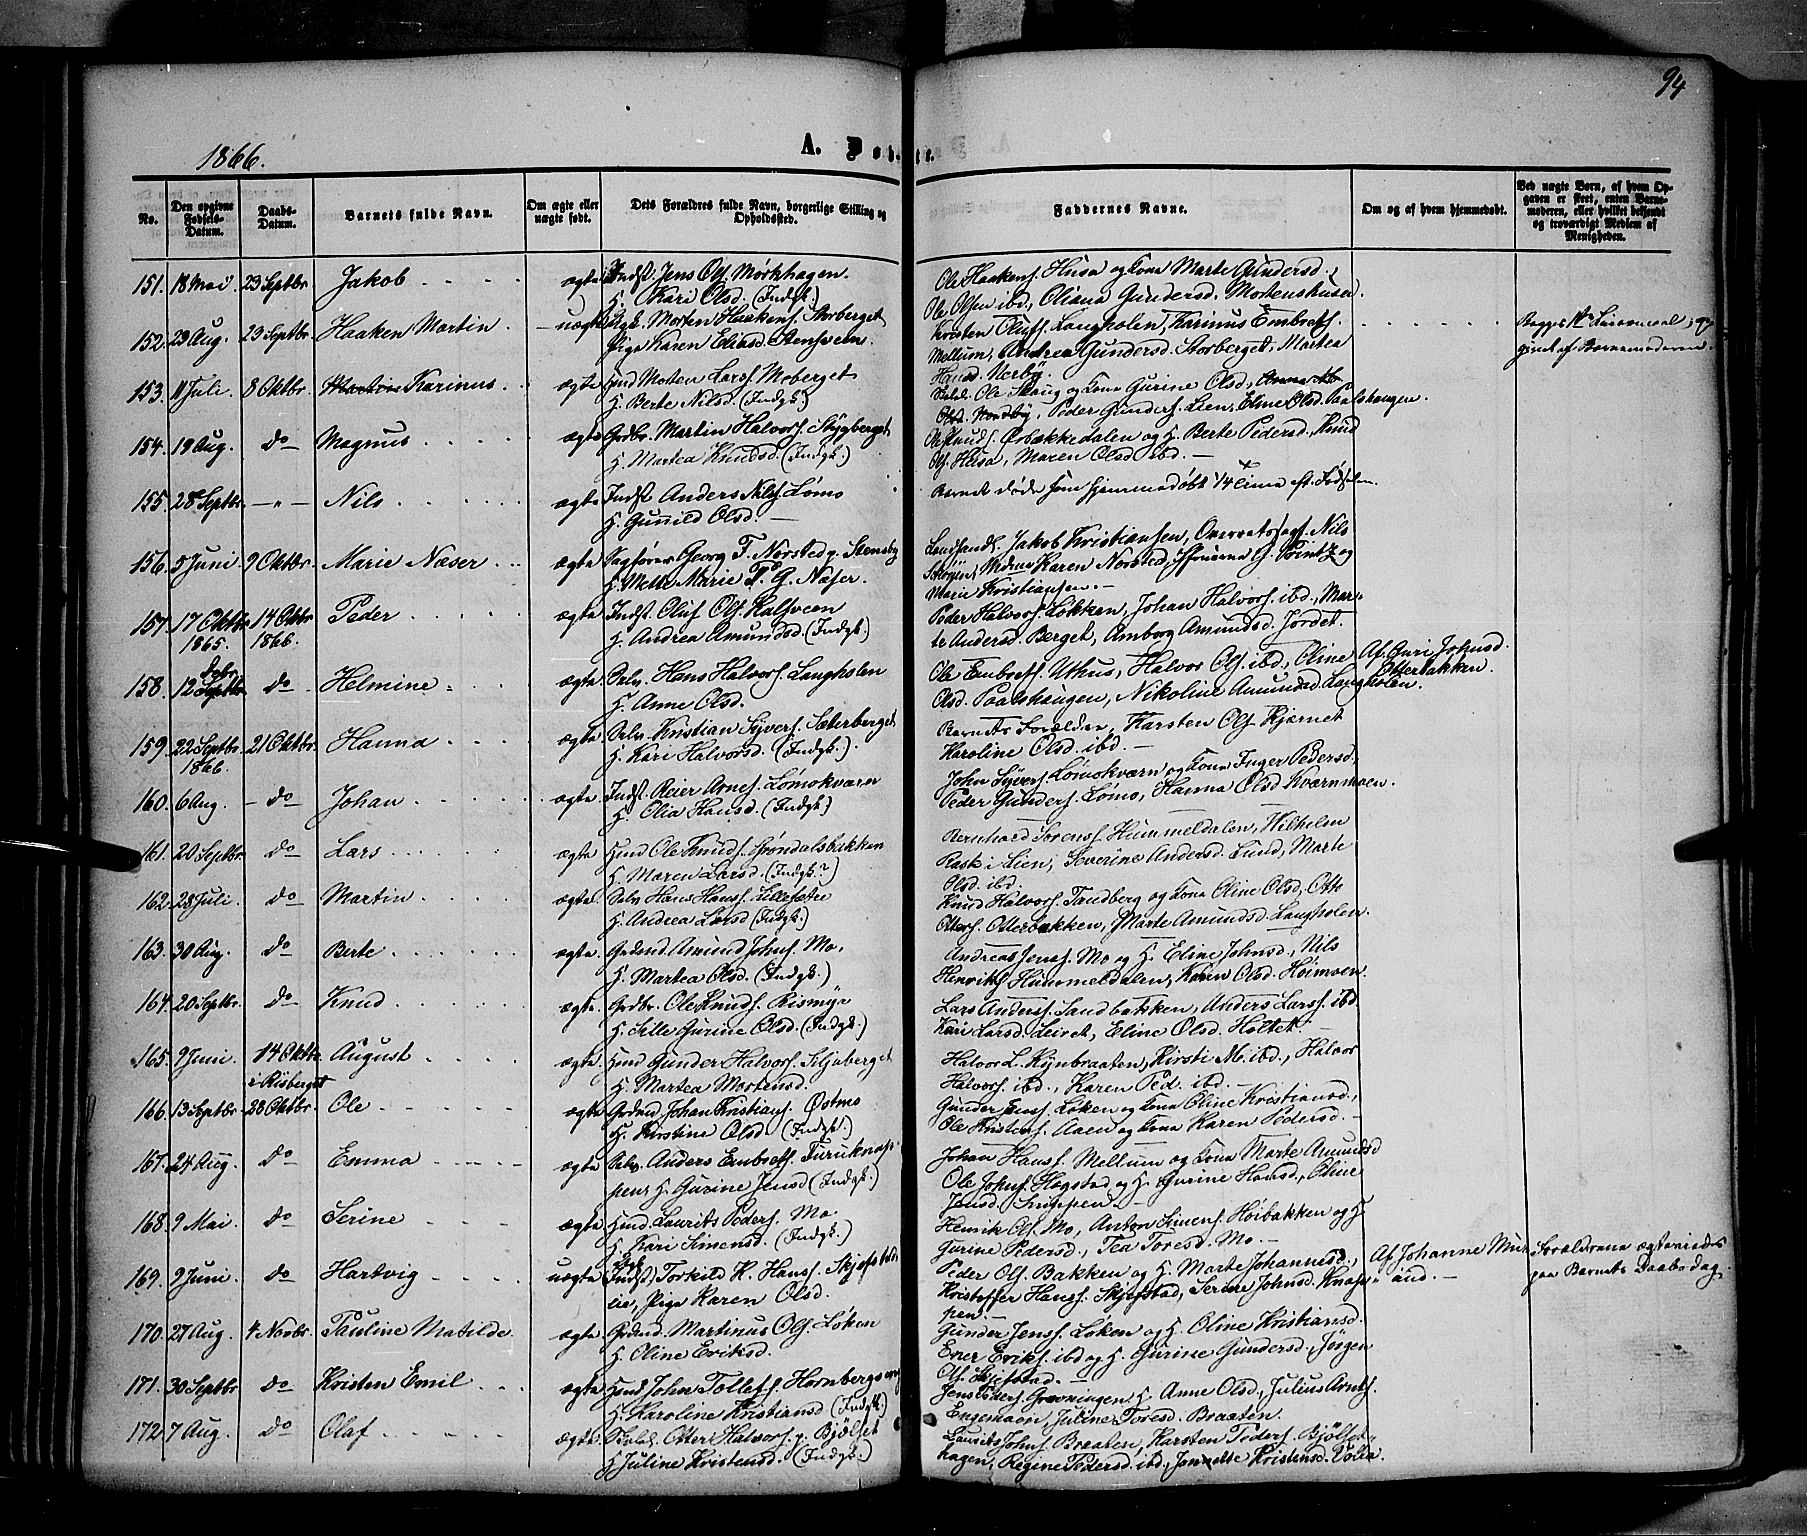 94
1866.
A. Døbte.
No.
Den opgivne Fødsels-Datum.
Daabs-Datum.
Barnets fulde Navn.
Om ægte eller uægte født.
Dets Forældres fulde Navn, borgerlige Stilling og Opholdssted.
Faddernes Navne.
Om og af hvem hjemmedøbt.
Ved uægte Børn, af hvem Opgaven er skeet, enten Barnemoderen, eller hvilket betjent og troværdigt Medlem af Menigheden.
151. 18 Mai 23 Septbr. Jakob ægte Indst. Jens Ols. Mørkhagen
H. Kari Olsd. (Indgk.)
Ole Haakens. Husa og Kona Marte Gundersd.
Ole Olsen ibd., Oliana Gundersd. Mortenshusen.
152. 29 Aug. 23 Septbr. Haaken Martin uægte Ugk. Morten Haakens. Storberget
Pige Karen Eliasd. Stensveen.
Kristen Olufs. Langholen, Karinus Embrets.
Mellum, Andrea Gundersd. Storberget, Martea
Hansd. Nerby.
givet af Barnemoderen.
153. 11 Juli. 8 Oktbr. Karinus ægte Hmd Morten Larss. Moberget
H. Berte Nilsd. (Indgk.)
Ole Skaug og Kona Gurine Olsd.,
Peder Gunders. Lien, Eline Olsd. Paalshaugen.
154. 19 Aug. do Magnus ægte Grdbr. Martin Halvors. Skygberget
H. Martea Knudsd. (Indgk.)
Ørbækkedalen og H. Berte Pedersd., Knud
Ols. Husa, Maren Olsd. ibd.
155. 28 Septbr. — „ — Nils ægte Indst Anders Nils. Lømo
H. Gunild Olsd.
Barnet døde som hjemmedøbt 1/4 Time eft. Fødselen.
156. 5 Juni 9 Oktbr. Marie Næser ægte Sagfører Georg F. Norsted p. Stensby
H. Mette Marie P. G. Næser.
Landhandl. Jakob Kristiansen, Overretssagf. Nils
Skøyen, Mdme Karen Norsted, Fruerne G. Printz og
Marie Kristiansen.
157. 17 Oktbr. 1865. 14 Oktbr 1866. Peder ægte Indst. Oluf Ols. Kalsveen
H. Andrea Amundsd. (Indgk.)
Peder Halvors. Løkken, Johan Halvors. ibd., Mar-
te Andersd. Berget, Amborg Amundsd. Jordet.
158. 12 Septbr. do Helmine ægte Selv. Hans Halvors. Langholen
H. Anne Olsd.
Ole Embrets. Uthus, Halvor Ols. ibd., Oline
Olsd. Paalshaugen, Nikoline Amundsd. Langholen.
Af Guri Johnsd.
Otterbakken.
159. 22 Septbr. 1866. 21 Oktbr. Hanna ægte Selv. Kristian Syvers. Sæterberget
H. Kari Halvorsd. (Indgk.)
Barnets Forældre, Karsten Ols. Kjernet
Karoline Olsd. ibd.
160. 6 Aug. do Johan ægte Indst. Reier Arnes. Lømokværn
H. Olia Hansd. (Indgk.)
John Syvers. Lømokværn og Kona Inger Pedersd.,
Peder Gunders. Lømo, Hanna Olsd. Kværnmoen.
161. 20 Septbr. do Lars ægte Hmd Ole Knuds. Grøndalsbakken
H. Maren Larsd. (Indgk.?)
Bernhard Sørens. Hummeldalen, Wilhelm
Rask i Lien, Severine Andersd. Lund, Marte
Olsd. ibd.
162. 28 Juli. do Martin ægte Selv. Hans Hans. Lillesæter
H. Andrea Larsd (Indgk.)
Knud Halvors. Tandberg og Kona Oline Olsd., Otto
Otters. Otterbakken, Marte Amundsd. Langholen.
163. 30 Aug. do Berte ægte Grdmd Amund Johns. Mo,
H. Martea Olsd. (Indgk.)
Andreas Jenss. Mo og H. Eline Johnsd., Nils
Henriks. Hummeldalen, Karen Olsd. Heimoen.
164. 20 Septbr. do Knud ægte Grdbr. Ole Knuds. Rismyr
H. Sille Gurine Olsd. (Indgk.)
Lars Anders. Sandbakken, Anders Larss. ibd.
Kari Larsd. Leiret, Eline Olsd. Holtet.
165. 9 Juni. 14 Oktbr. i Risberget August ægte Hmd Gunder Halvors. Skjaberget
H. Martea Mortensd.
Halvor L. Kynbraaten, Kirsti M. ibd., Halvor
Halvors. ibd., Karen Ped. ibd.
166. 13 Septbr. 28 Oktbr. Ole ægte Grdmd Johan Kristians. Østmo
H. Kirstine Olsd. (Indgk.)
Gunder Jenss. Løken og Kona Oline Kristiansd.,
Ole Kristens. Aaen og Kona Karen Pedersd.
167. 24 Aug. do Emma ægte Selv. Anders Embrets. Furuknap-
pen, H. Gurine Jensd (Indgk.)
Johan Hanss. Mellum og Kona Marte Amundsd
Ole Johns. Høgstad og H. Gurine Hansd., Oline
Jensd. Knippen.
168. 9 Mai. do Serine ægte Hmd Laurits Peders. Mo
H. Kari Simensd. (Indgk.)
Henrik Ols. Mo, Anton Simens. Høibakken og H.
Gurine Pedersd., Tea Toresd. Mo.
169. 2 Juni. do Hartvig uægte Indst. Torkild K. Hanss. Skjefstad-
eie, Pige Karen Olsd.
Peder Ols. Bakken og H. Marte Johannesd.,
Kristoffer Hanss. Skjefstad, Serine Johnsd. Knap-
pen.
Af Johanne Mur-
aud.
Forældrene ægteviedes
paa Barnets Daabsdag.
170. 27 Aug. 4 Novbr. Pauline Matilde ægte Grdmd. Martinus Ols. Løken
H. Oline Eriksd.
Gunder Jenss. Løken og H. Oline Kristiansd.
Ener Eriks. ibd og H. Gurine Gundersd., Jørgen
Ols. Skjefstad.
171. 30 Septbr. do Kristen Emil ægte Hmd John Tollefs. Hornbergseng
H. Karoline Kristiansd (Indgk.)
Jens Peders. Grønningen, H. Anne Olsd., Julius Arnts.
Engemoen, Juline Toresd. Braaten.
172. 7 Aug. do Olaf ægte Otter Halvors. p. Bjølset
H. Juline Kristensd. (Indgk.)
Laurits Johns. Braaten, Karsten Peders. Bjølset-
hagen, Regine Pedersd. ibd., Jannette Kristensd. Volla.